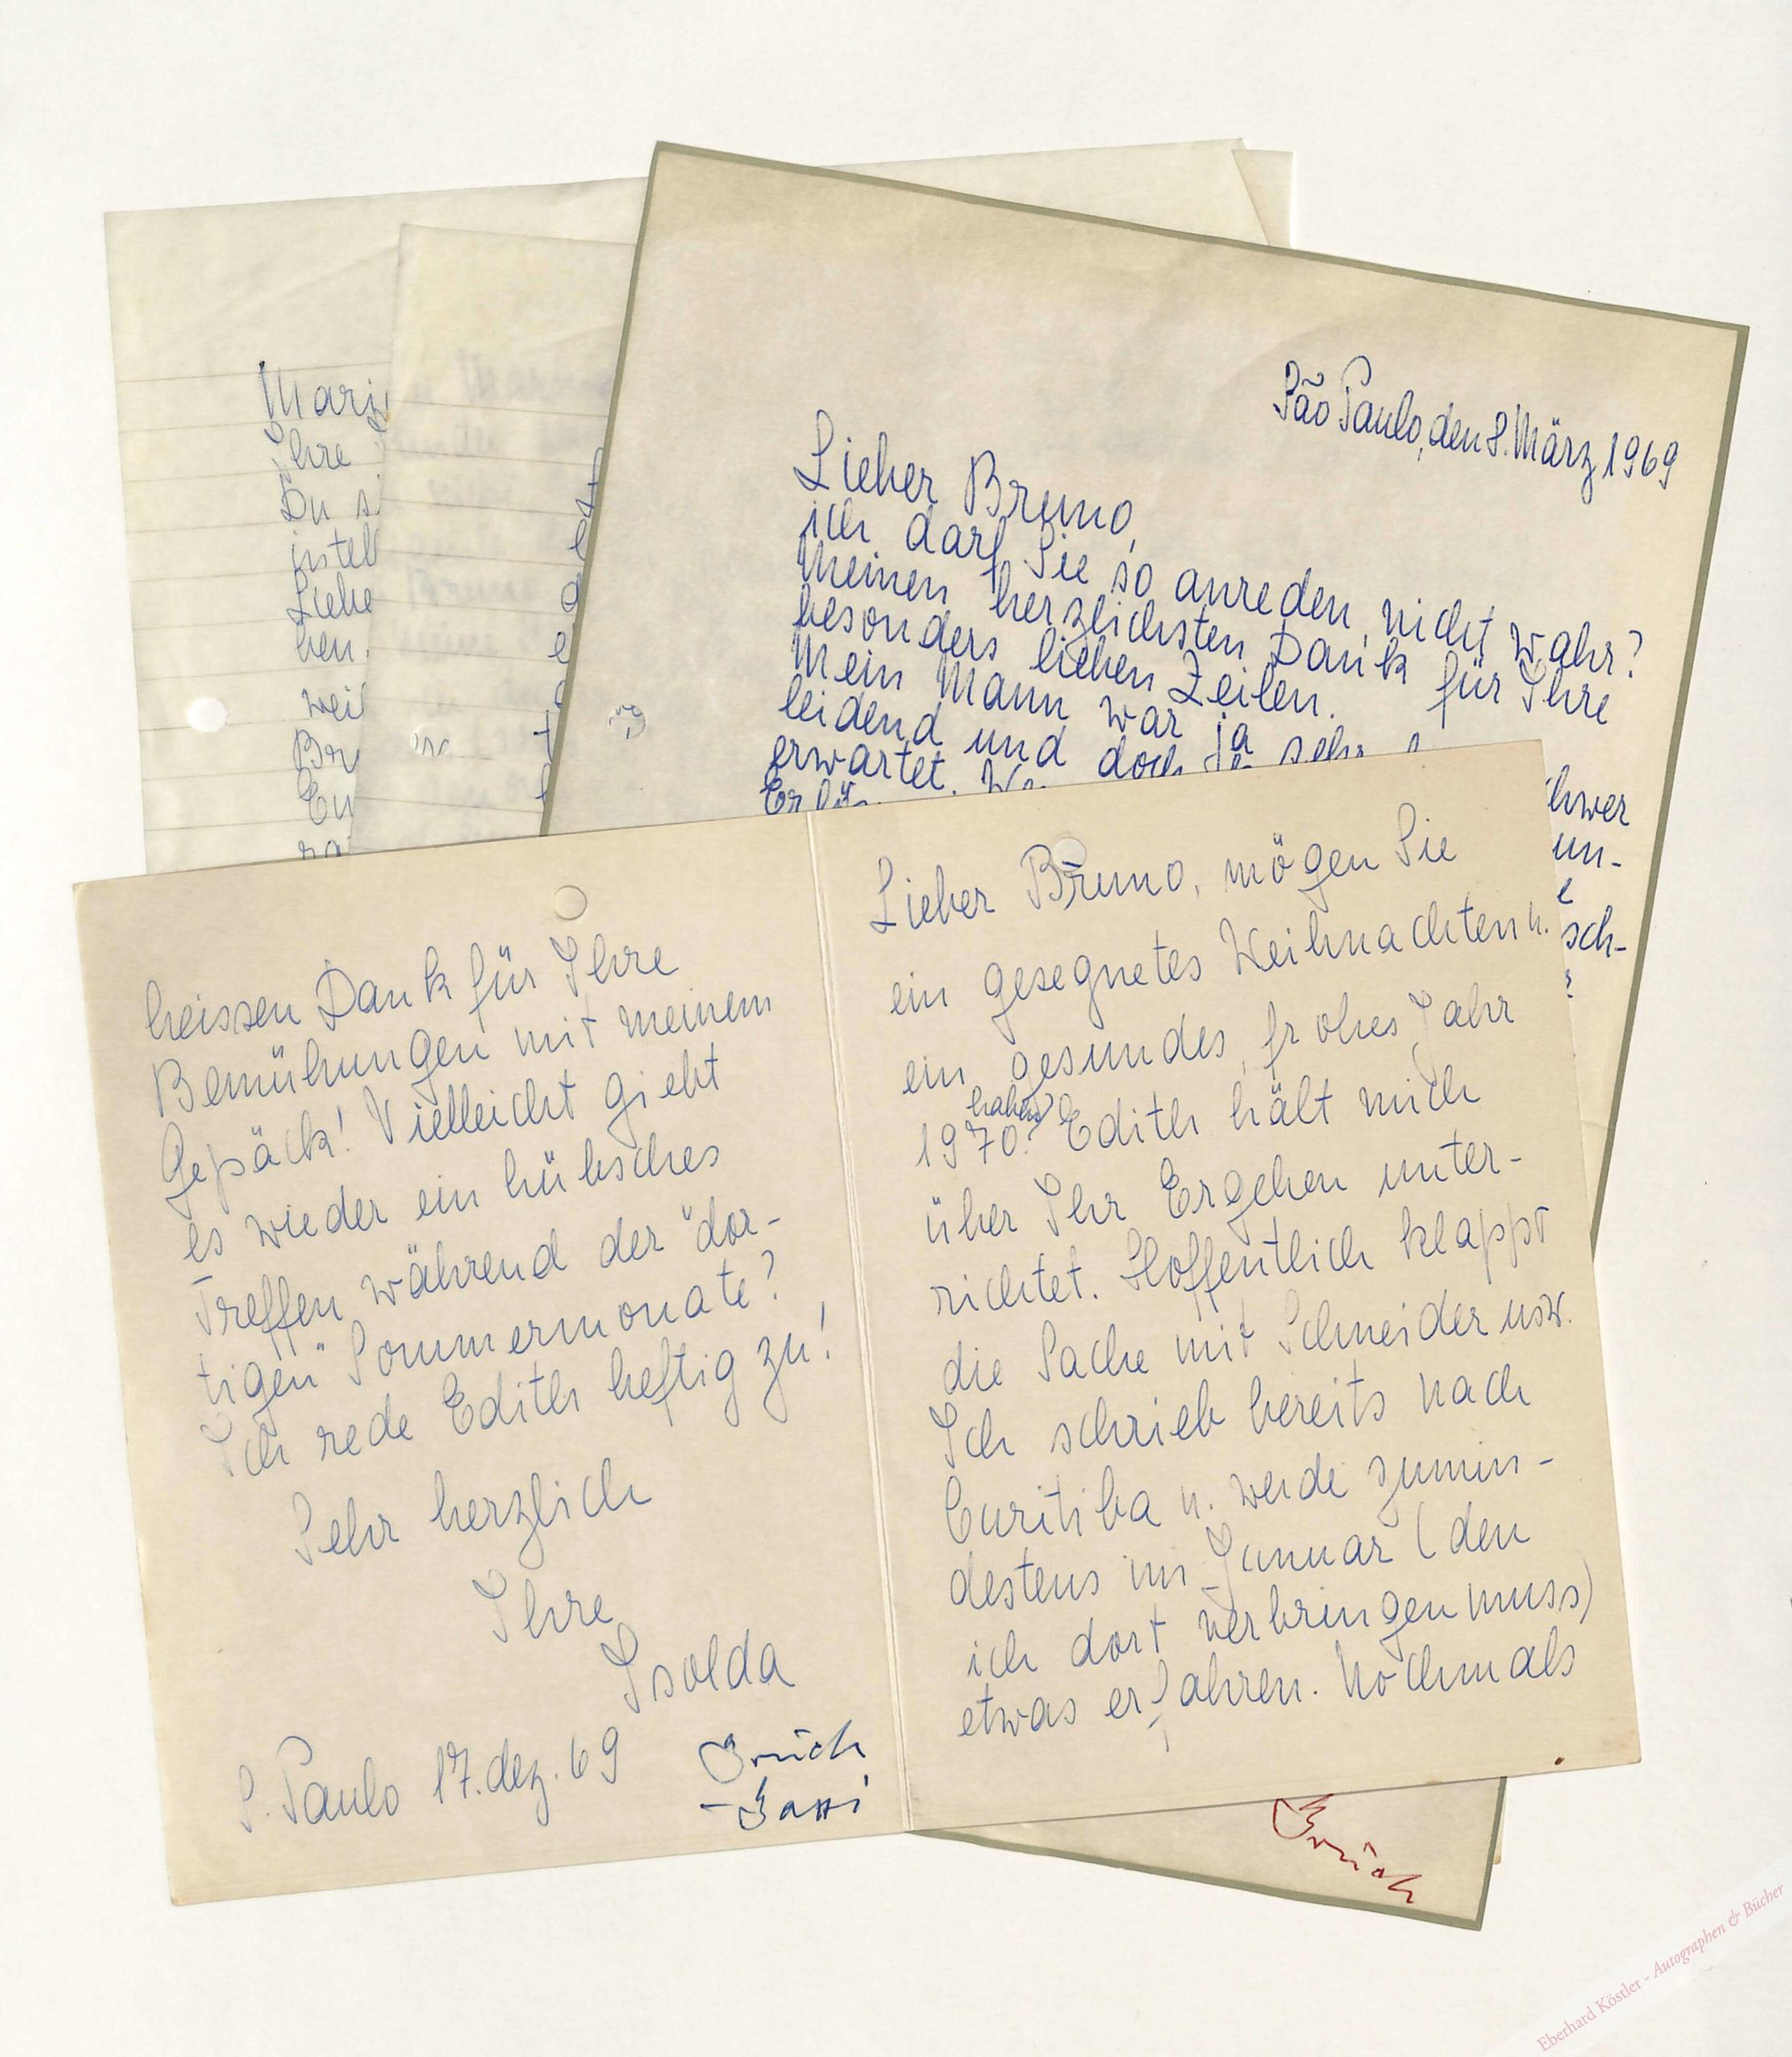 Mari
Ihre
Du s
instel
Liebe
ben.
weil
Br
Eu
ra
São Paulo, den 8. März 1969
Lieber Bruno,
ich darf Sie so anreden, nicht wahr?
Meinen herzlichsten Dank für Ihre
besonders lieben Zeilen.
Mein Mann war ja sehr schwer
leidend und doch
un-
erwartet.
sch-
Lieber Bruno, mögen Sie
ein gesegnetes Weihnachten u.
ein gesundes, frohes Jahr
1970 haben? Edith hält mich
über Ihr Ergehen unter-
richtet. Hoffentlich klappt
die Sache mit Schneider usw.
Ich schrieb bereits nach
Curitiba u. werde zumin-
destens im Januar (den
ich dort verbringen muss)
etwas erfahren. Nochmals
heissen Dank für Ihre
Bemühungen mit meinem
Gepäck! Vielleicht giebt
es wieder ein hübsches
Treffen während der "dor-
tigen" Sommermonate?
Ich rede Edith heftig zu!
Sehr herzlich
Ihre
Isolda
S. Paulo 17. dez. 69
Brüch
-Bassi
Brüch
Eberhard Köstler - Autographen & Bücher